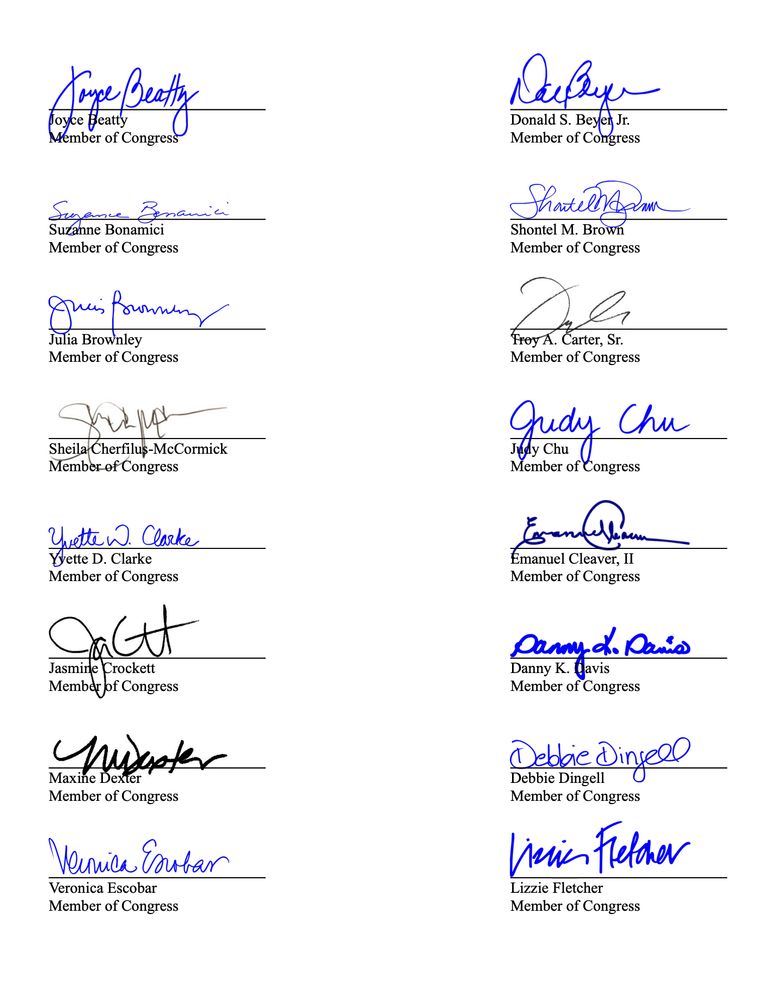 Joyce Beatty
Joyce Beatty
Member of Congress
Don Beyer
Donald S. Beyer Jr.
Member of Congress
Suzanne Bonamici
Suzanne Bonamici
Member of Congress
Shontel M. Brown
Shontel M. Brown
Member of Congress
Julia Brownley
Julia Brownley
Member of Congress
Troy A. Carter, Sr.
Member of Congress
Sheila Cherfilus-McCormick
Member of Congress
Judy Chu
Judy Chu
Member of Congress
Yvette D. Clarke
Yvette D. Clarke
Member of Congress
Emanuel Cleaver
Emanuel Cleaver, II
Member of Congress
Jasmine Crockett
Member of Congress
Danny K. Davis
Danny K. Davis
Member of Congress
Maxine Dexter
Member of Congress
Debbie Dingell
Debbie Dingell
Member of Congress
Veronica Escobar
Veronica Escobar
Member of Congress
Lizzie Fletcher
Lizzie Fletcher
Member of Congress